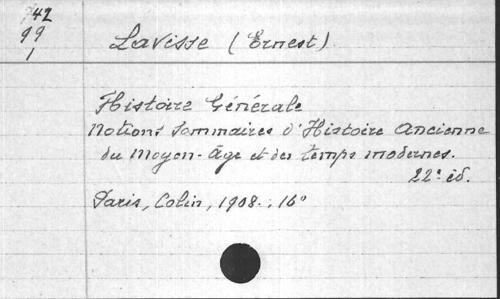 742
99
1
Lavisse (Ernest)
Histoire Générale
Notions Sommaires d'Histoire Ancienne
du Moyen-Âge et des temps modernes.
22e éd.
Paris, Colin, 1908.; 16°